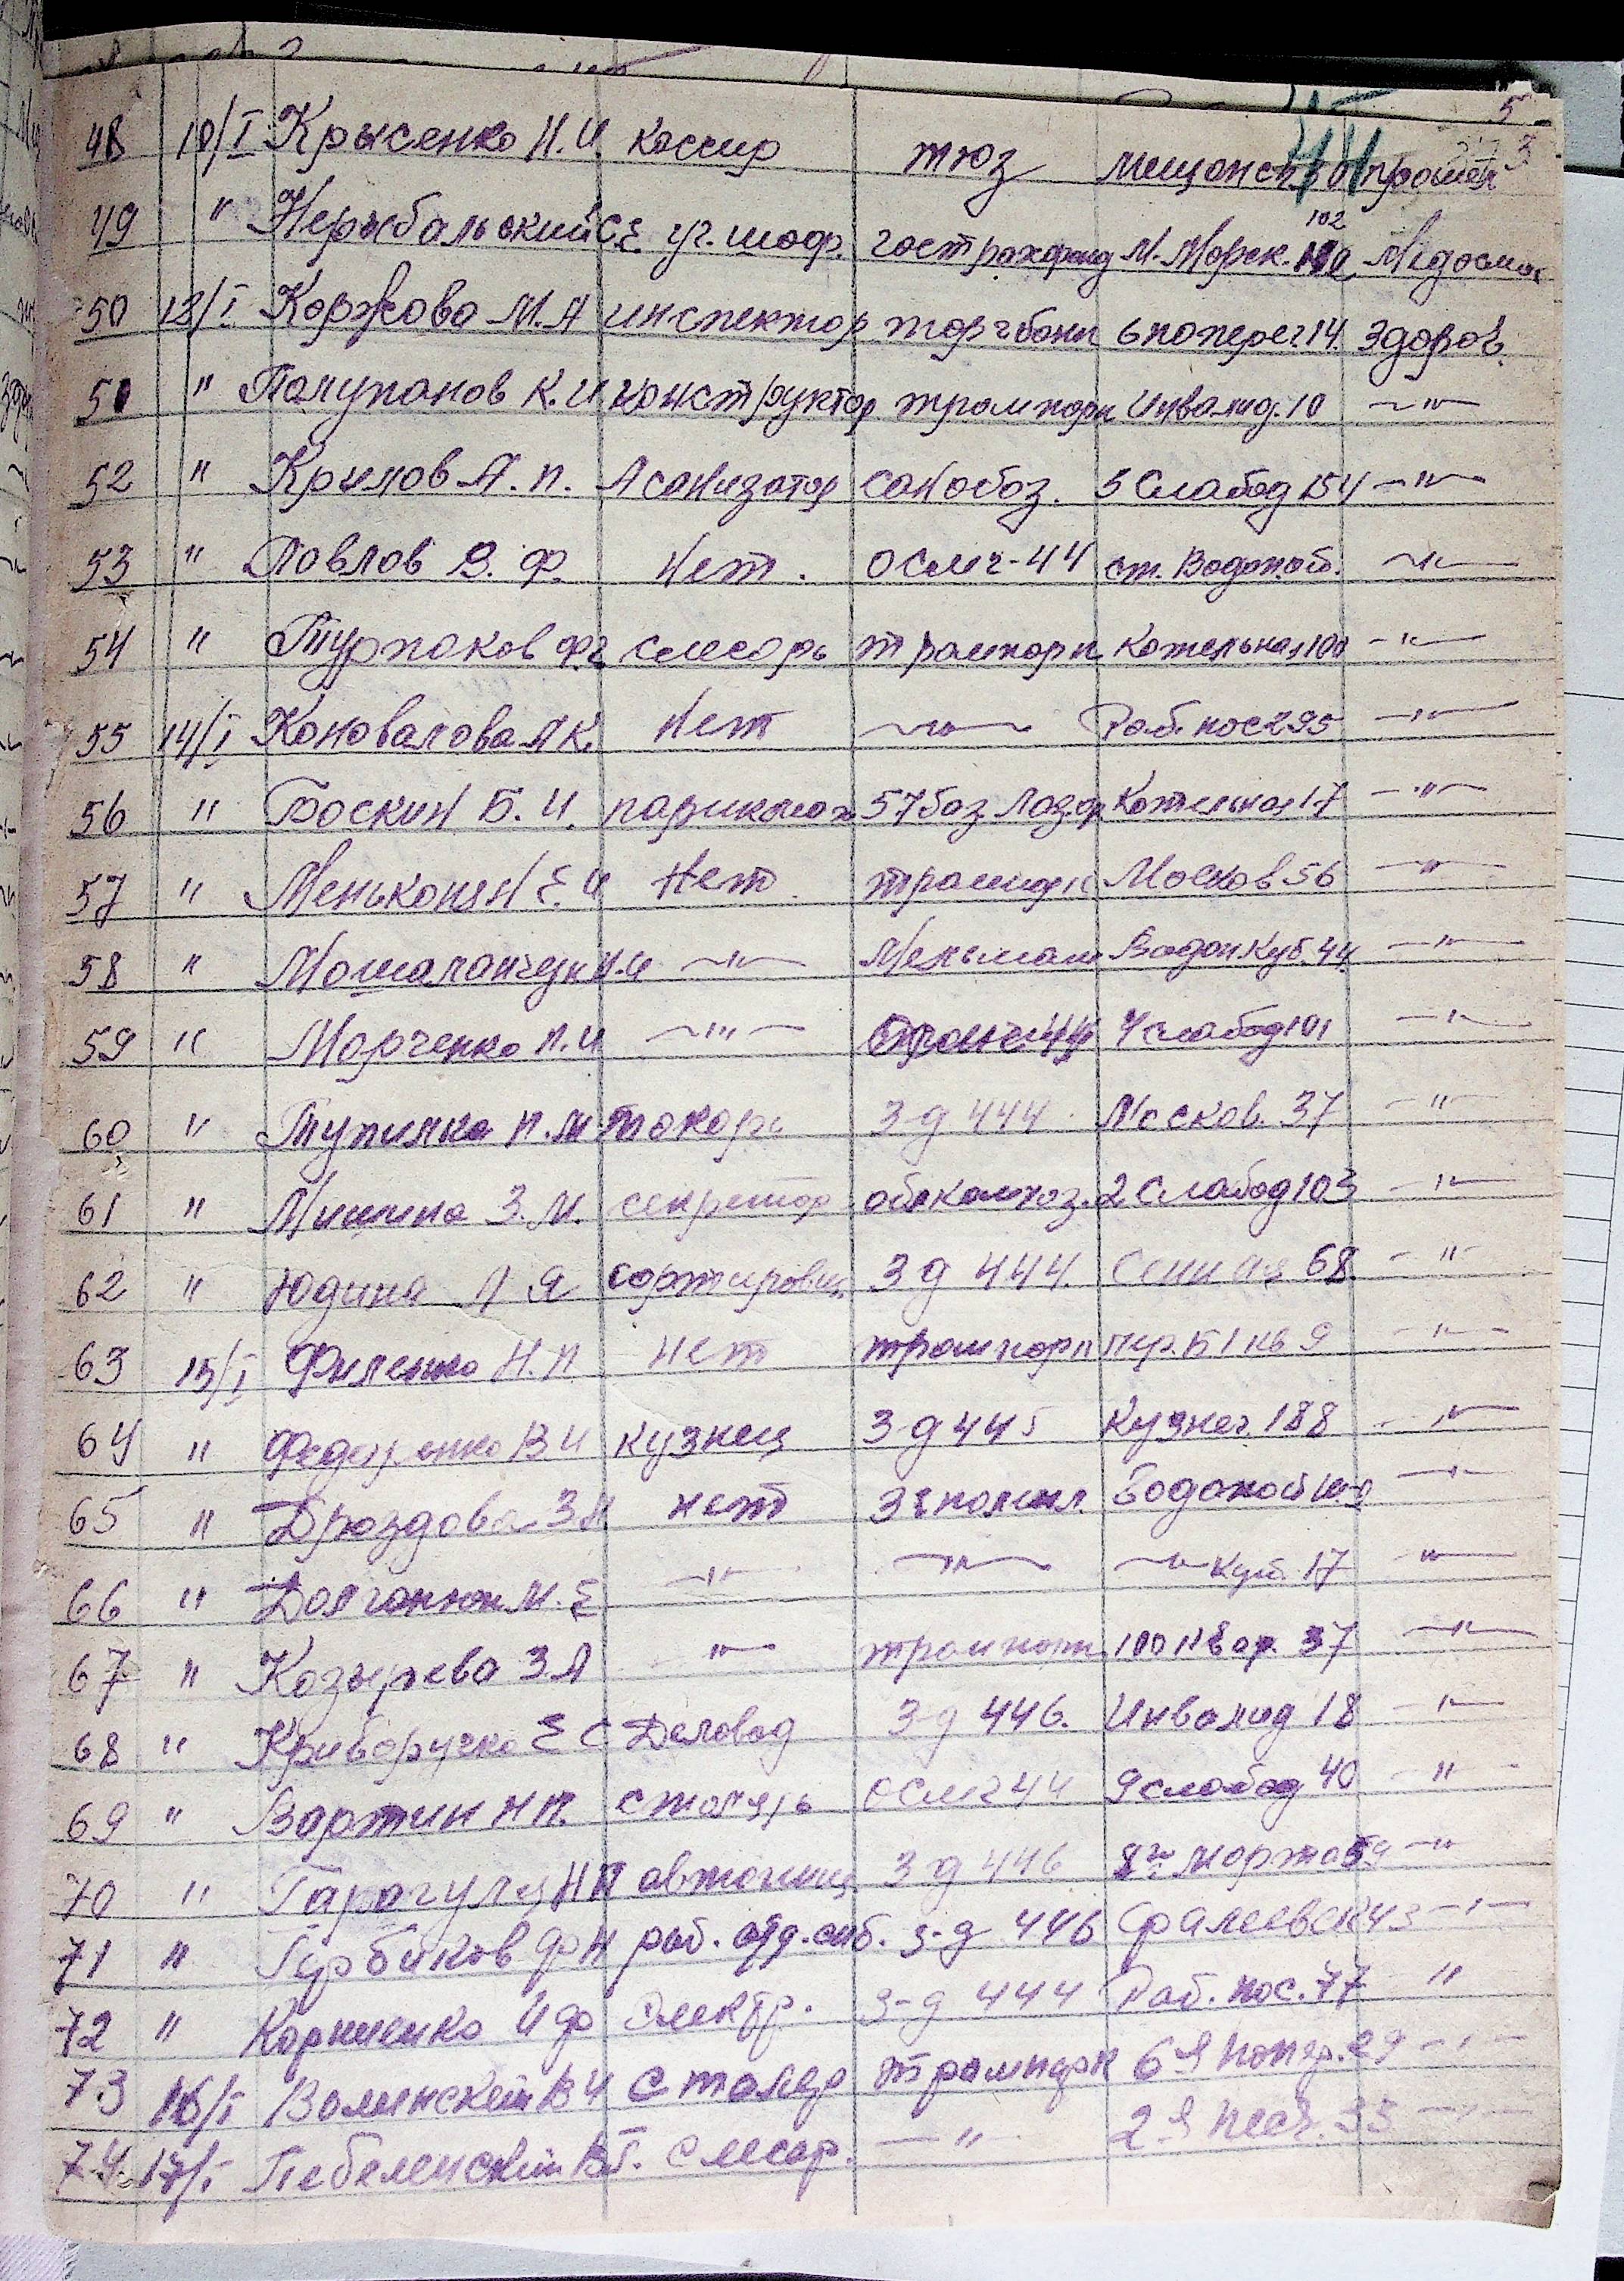 5
3
48 10/I Крысенко Н.И. Кассир тюз Мещанск прошел
49 " Нерыбальский С.Е уч. шоф. гострахфонд М. Морск. 102
50 13/I Коржова М.А инспектор торгбанк 6 попереч 14. Здоров
51 " Полупанов К.И конструктор трампарк Инвалид. 10 —"—
52 " Крилов А.П. Асанизатор Санобоз. 5 Слабод 154 —"—
53 " Павлов В.Ф. Нет. ОСМЧ-44 ст. Водопой. —"—
54 " Турпаков Ф.г слесарь трампарк Котельная 100 —"—
55 14/I Коновалова А К. Нет —"— Раб. пос 295 —"—
56 " Баскин Б.И. парикмах 57 баз Лаз. Котельная 17 —"—
57 " Менькопян Е.И Нет Москов 56 —"
58 " Н.И —"— Мельмаш Вадоп Куб. 44. —"—
59 " Марченко П.И —"— 7 слабод 101 —"—
60 " Тупилка П.М токарь З-д 444 Москов. 37 —"—
61 " Мишина З.М. секретар. облкомхоз. 2 Слабод 103 —"—
62 " Юдина Л Я сортировщ. З-д 444. Сенная 68 —"—
63 15/I Филенко Н.П Нет трампарк пер. Б 1 кв 9 —"—
64 " Федаренко В И кузнец З-д 445 Кузнеч. 188 —"—
65 " Дроздова З Нет Водопой —"—
66 " М.Е —"— —"— —"— Куб. 17 "—
67 " Козырева З.А "— 100 квар. 37 —"—
68 " Криворучко Е С Деловод З-д 446. Инвалид 18 —"—
69 " Вартин Н П. столяр ОСМЧ 44 9 слабод 40 —"
70 " Гарагуля Н П З-д 446 8го марта 59 —"
71 " Гербиков Ф Н раб. отд. снб. з-д 446 Фалеевск 43 —"—
72 " Корниенко И Ф Электр. з-д 444 Раб. пос. 77 "
73 16/I Волинский В И Столяр трампарк 6-я попер. 29 —"—
74 17/I В.Г. Слесар. —"— 2-я песч. 33 —"—